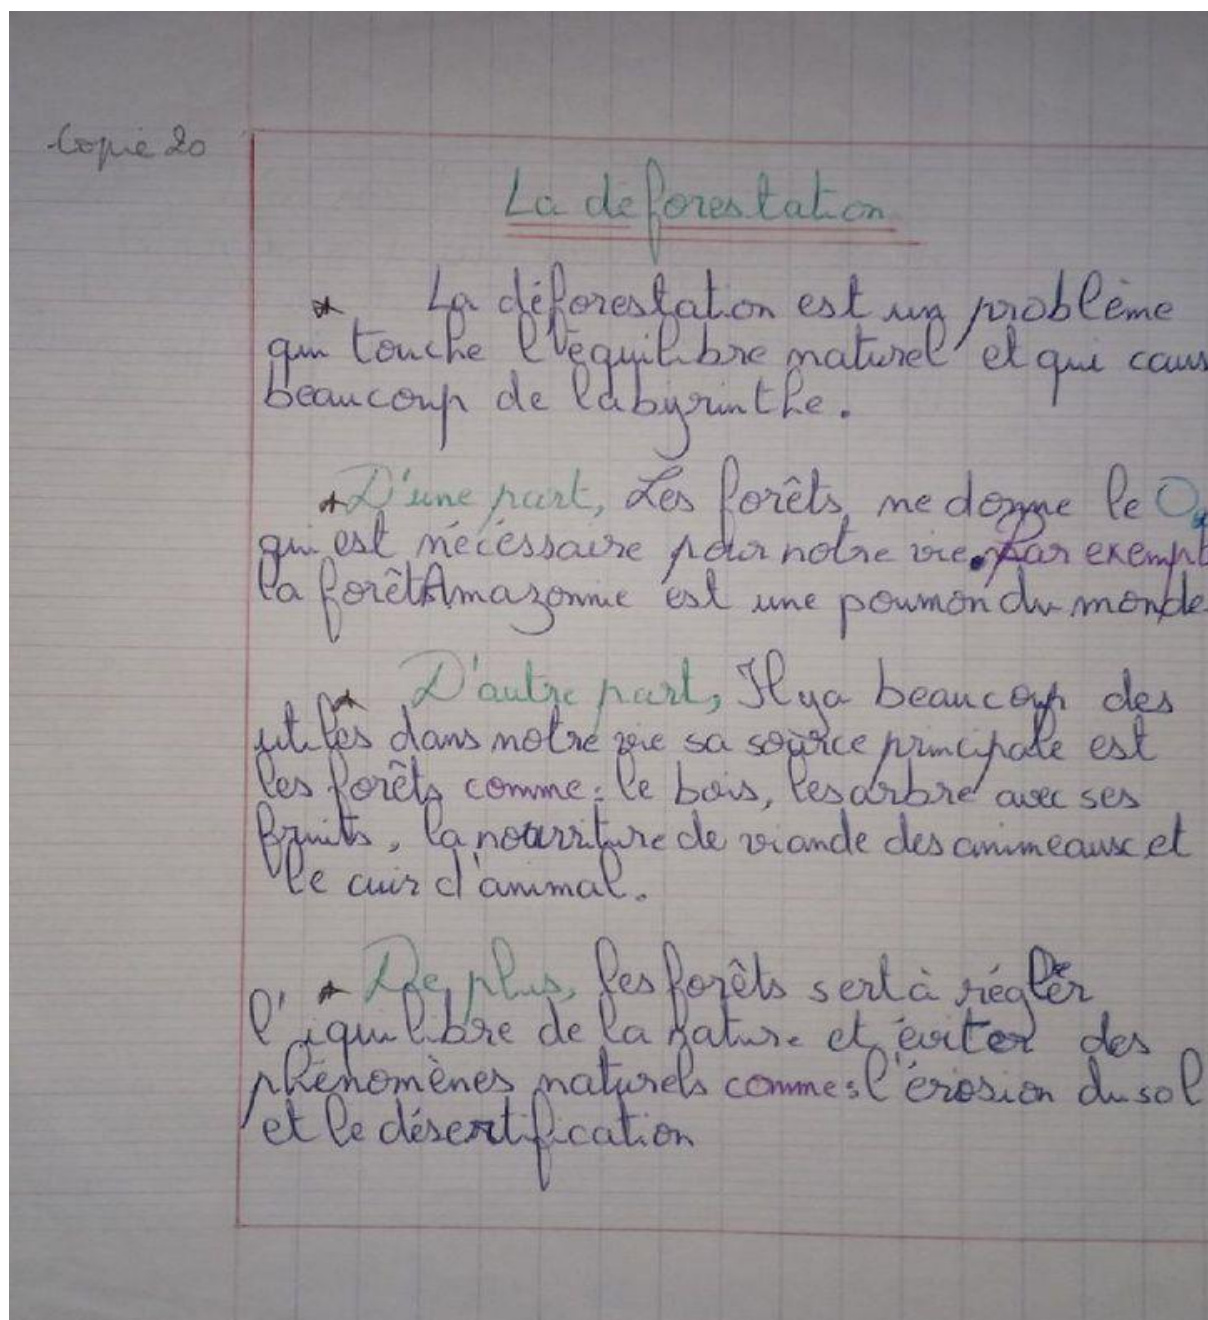 Copie 20
La déforestation
La déforestation est un problème
qui touche l'équilibre naturel et qui caus
beaucoup de labyrinthe.
D'une part, Les forêts ne donne le O₂
qui est nécessaire pour notre vie. Par exempl
la forêt Amazonnie est une poumon du monde
D'autre part, Il ya beaucoup des
utiles dans notre vie sa source principale est
les forêts comme : le bois, les arbre avec ses
fruits, la nourriture de viande des animeaux et
le cuir d'animal.
De plus, les forêts sert à régler
l'iquilibre de la nature et éviter des
phénomènes naturels comme : l'érosion du sol
et le désertification